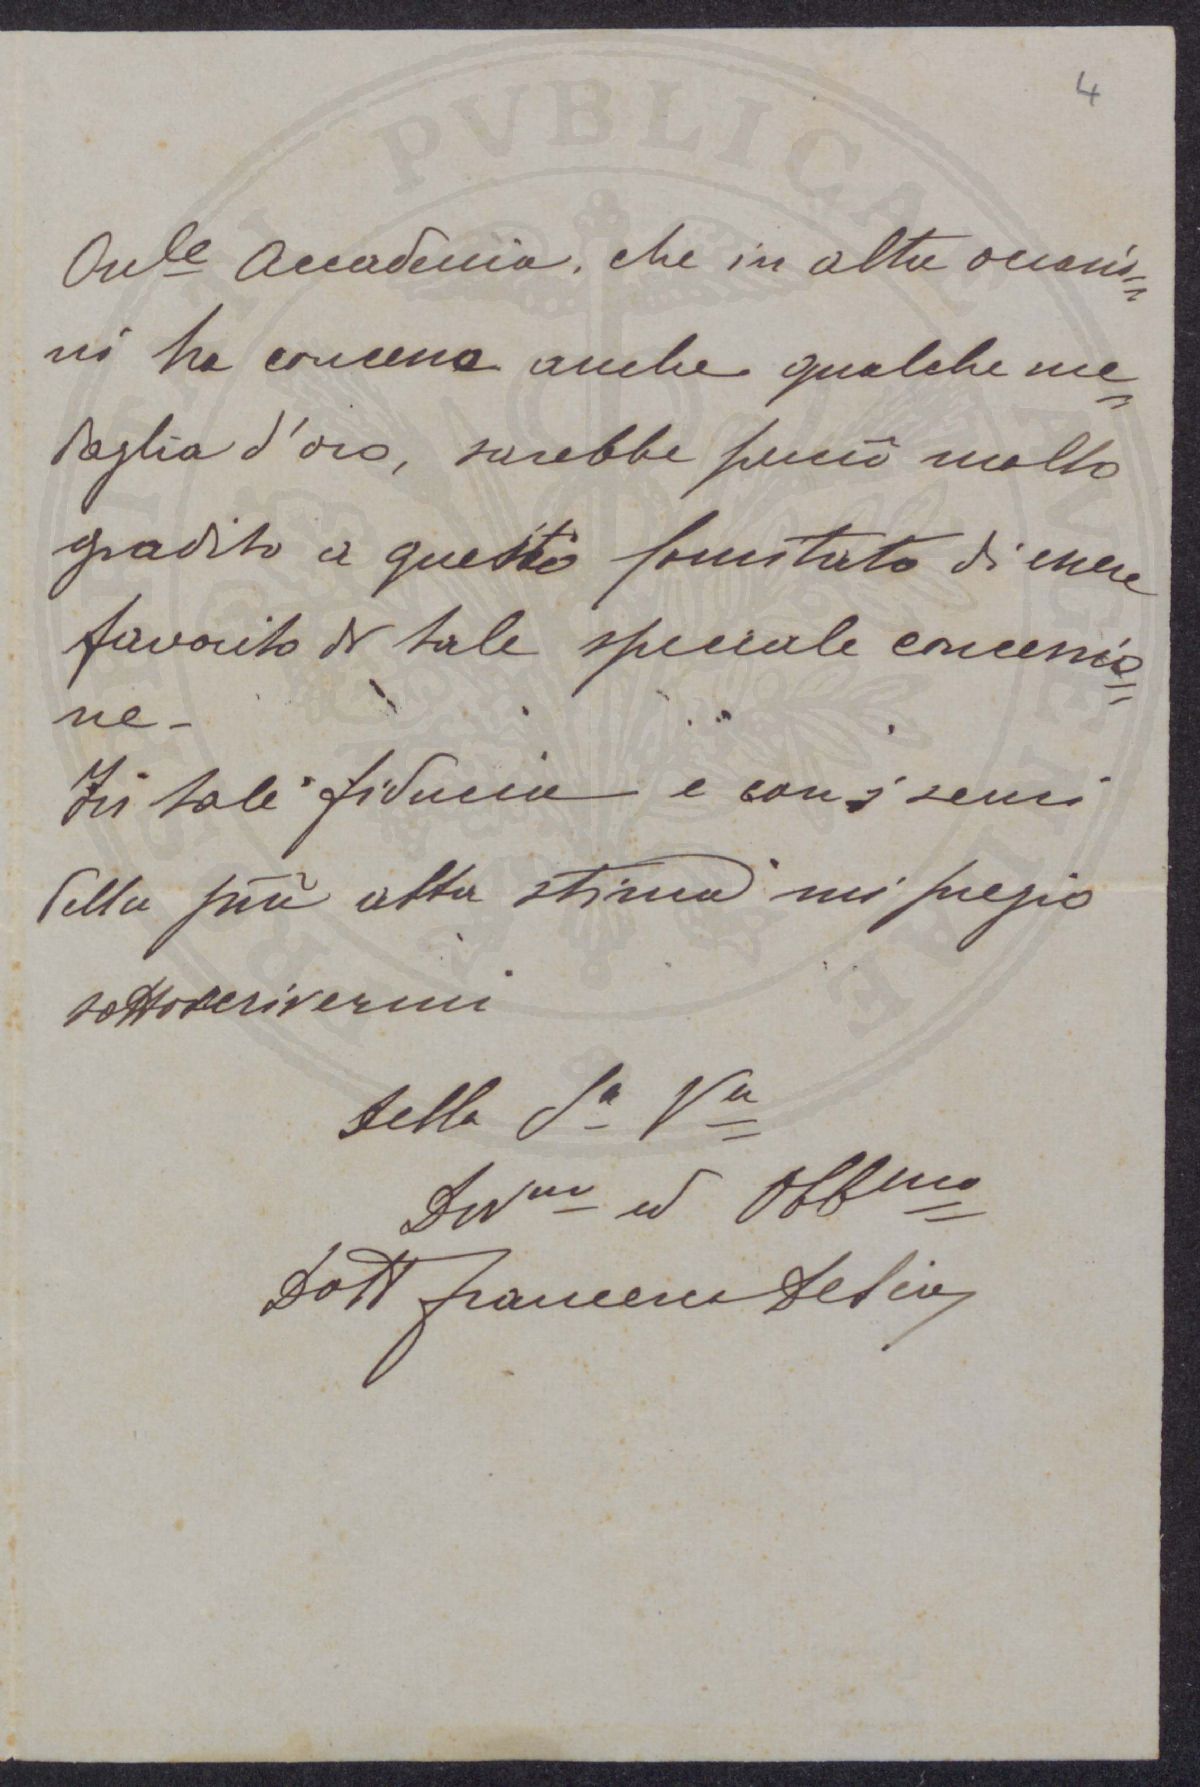 4
On.le Accademia, che in altre occasio=
ni ha concesso anche qualche me=
daglia d'oro, sarebbe perciò molto
gradito a questo Comitato di essere
favorito di tale speciale concessio=
ne -
In tale fiducia e con i sensi
della più alta stima mi pregio
sottoscrivermi
della S.a V.a
Dev.mo ed Obb.mo
Dott Francesco